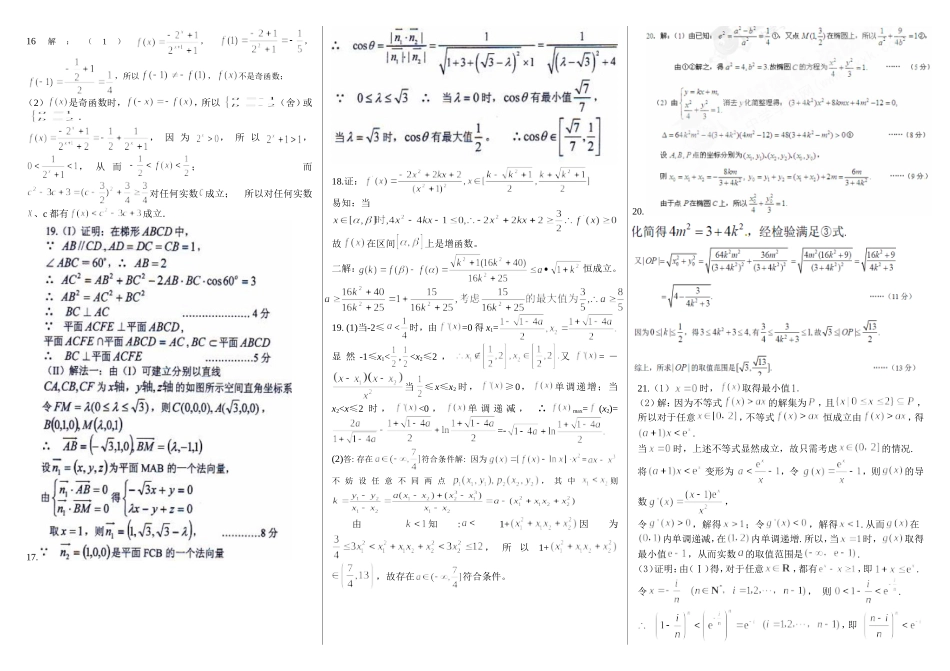 16 解：（1）f(x)=(-2^x+1)/(2^{x+1}+1)，f(1)=(-2+1)/(2^2+1)=-1/5，
f(-1)=(-1/2+1)/2=1/4，所以f(-1)≠-f(1)，f(x)不是奇函数；
（2）f(x)是奇函数时，f(-x)=-f(x)，所以（舍）或
f(x)=(-2^x+1)/(2^{x+1}+2)=-1/2+1/(2^x+1)，因为2^x>0，所以2^x+1>1，
0<1/(2^x+1)<1，从而-1/2<f(x)<1/2；而
c²-3c+3=(c-3/2)²+3/4≥3/4对任何实数c成立； 所以对任何实数
x、c都有f(x)<c²-3c+3成立.
19. (I)证明：在梯形ABCD中，
∵ AB//CD, AD=DC=CB=1，
∠ABC=60°，∴ AB=2
∴ AC²=AB²+BC²-2AB·BC·cos60°=3
∴ AB²=AC²+BC²
∴ BC⊥AC ………………… 4分
∵ 平面ACFE⊥平面ABCD，
平面ACFE∩平面ABCD=AC, BC⊂平面ABCD
∴ BC⊥平面ACFE ……………5分
(II) 解法一：由（I）可建立分别以直线
CA,CB,CF为x轴，y轴，z轴的如图所示空间直角坐标系
令FM=λ(0≤λ≤√3)，则C(0,0,0)，A(√3,0,0)，
B(0,1,0),M(λ,0,1)
∴ AB=(-√3,1,0),BM=(λ,-1,1)
设n₁=(x,y,z)为平面MAB的一个法向量，
由{n₁·AB=0 n₁·BM=0 得{-√3x+y=0 λx-y+z=0
取x=1，则n₁=(1,√3,√3-λ)， …………8分
17.∵ n₂=(1,0,0)是平面FCB的一个法向量
∴ cosθ=|n₁·n₂|/(|n₁|·|n₂|)=1/√(1+3+(√3-λ)²×1)=1/√((λ-√3)²+4)
∵ 0≤λ≤√3 ∴ 当λ=0时，cosθ有最小值√7/7，
当λ=√3时，cosθ有最大值1/2。 ∴cosθ∈[√7/7,1/2]
18.证：f'(x)=(-2x²+2kx+2)/(x²+1)²,x∈[(k-√(k²+1))/2,(k+√(k²+1))/2]
易知：当
x∈[α,β]时,4x²-4kx-1≤0,∴-2x²+2kx+2≥3/2∴f'(x)≥0
故f(x)在区间[α,β]上是增函数。
二解：g(k)=f(β)-f(α)=√(k²+1)(16k²+40)/(16k²+25)≤a·√(1+k²)恒成立。
a≥(16k²+40)/(16k²+25)=1+15/(16k²+25),考虑15/(16k²+25)的最大值为3/5,∴a≥8/5
19. (1)当-2≤a<1/4时，由f'(x)=0得x₁=(1-√(1-4a))/2,x₂=(1+√(1-4a))/2.
显然-1≤x₁<1/2,1/2<x₂≤2，∴x₁∉[1/2,2],x₂∈[1/2,2].又f'(x)=－
(x-x₁)(x-x₂)/x²当1/2≤x≤x₂时，f'(x)≥0，f(x)单调递增；当
x₂<x≤2时，f'(x)<0，f(x)单调递减，∴f(x)max=f(x₂)=
2a/(1+√(1-4a))-(1+√(1-4a))/2+ln(1+√(1-4a))/2=-√(1-4a)+ln(1+√(1-4a))/2.
(2)答: 存在a∈(-∞,7/4]符合条件解: 因为g(x)=[f(x)-lnx]·x²=ax-x³
不妨设任意不同两点p₁(x₁,y₁),p₂(x₂,y₂)，其中x₁<x₂则
k=(y₁-y₂)/(x₁-x₂)=(a(x₁-x₂)+(x₂³-x₁³))/(x₁-x₂)=a-(x₁²+x₁x₂+x₂²)
由k<1知: a<1+(x₁²+x₁x₂+x₂²)因为
3/4≤3x₁²<x₁²+x₁x₂+x₂²<3x₂²≤12，所以1+(x₁²+x₁x₂+x₂²)
∈(7/4,13)，故存在a∈(-∞,7/4]符合条件。
20. 解:（1）由已知：e²=(a²-b²)/a²=1/4①，又点M(1,3/2)在椭圆上，所以1/a²+9/(4b²)=1②，
由①②解之，得a²=4,b²=3.故椭圆C的方程为x²/4+y²/3=1. ……（5分）
（2）由{y=kx+m, x²/4+y²/3=1.消去y化简整理得：(3+4k²)x²+8kmx+4m²-12=0,
Δ=64k²m²-4(3+4k²)(4m²-12)=48(3+4k²-m²)>0③ ……（8分）
设A,B,P点的坐标分别为(x₁,y₁),(x₂,y₂),(x₀,y₀)，
则x₀=x₁+x₂=-8km/(3+4k²),y₀=y₁+y₂=k(x₁+x₂)+2m=6m/(3+4k²). ……（9分）
20. 由于点P在椭圆C上，所以x₀²/4+y₀²/3=1.
化简得4m²=3+4k².，经检验满足③式.
又|OP|=√(x₀²+y₀²)=√(64k²m²/(3+4k²)²+36m²/(3+4k²)²)=√(4m²(16k²+9)/(3+4k²)²)=√((16k²+9)/(4k²+3))
=√(4-3/(4k²+3)). ……(11分)
因为0≤|k|≤1/2，得3≤4k²+3≤4,有3/4≤3/(4k²+3)≤1,故√3≤|OP|≤√13/2.
综上，所求|OP|的取值范围是[√3,√13/2]. ……（13分）
21.（1）x=0时，f(x)取得最小值1.
（2）解：因为不等式f(x)>ax的解集为P，且{x|0≤x≤2}⊆P，
所以对于任意x∈[0,2]，不等式f(x)>ax恒成立由f(x)>ax，得
(a+1)x<eˣ.
当x=0时，上述不等式显然成立，故只需考虑x∈(0,2]的情况.
将(a+1)x<eˣ变形为a<eˣ/x-1，令g(x)=eˣ/x-1，则g(x)的导
数g'(x)=(x-1)eˣ/x²，
令g'(x)>0，解得x>1；令g'(x)<0，解得x<1.从而g(x)在
(0,1)内单调递减，在(1,2)内单调递增.所以，当x=1时，g(x)取得
最小值e-1，从而实数a的取值范围是(-∞,e-1).
（3）证明：由（Ⅰ）得，对于任意x∈R，都有eˣ-x≥1，即1+x≤eˣ.
令x=-i/n (n∈N*，i=1,2,⋯,n-1)，则0<1-i/n<e^{-i/n}.
∴(1-i/n)ⁿ<(e^{-i/n})ⁿ=e^{-i} (i=1,2,⋯,n-1)，即((n-i)/n)ⁿ<e^{-i}